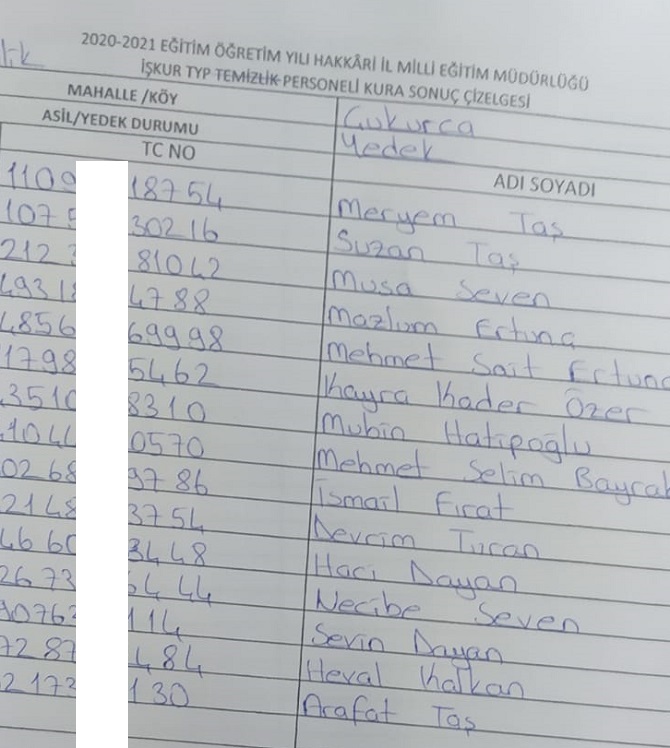 lik
2020-2021 EĞİTİM ÖĞRETİM YILI HAKKÂRİ İL MİLLİ EĞİTİM MÜDÜRLÜĞÜ
İŞKUR TYP TEMİZLİK PERSONELİ KURA SONUÇ ÇİZELGESİ
MAHALLE /KÖY Çukurca
ASİL/YEDEK DURUMU Yedek
TC NO ADI SOYADI
1109 18754 Meryem Taş
107 30216 Suzan Taş
212 81042 Musa Seven
4931 4788 Mazlum Ertunç
4856 69998 Mehmet Sait Ertunç
1798 5462 Kayra Kader Özer
3510 8310 Mubin Hatipoğlu
104 0570 Mehmet Selim Bayrak
0268 9786 İsmail Fırat
2148 3754 Devrim Turan
4660 3448 Haci Dayan
2673 5444 Necibe Seven
9076 114 Sevin Dayan
7287 484 Heval Kalkan
2173 130 Arafat Taş